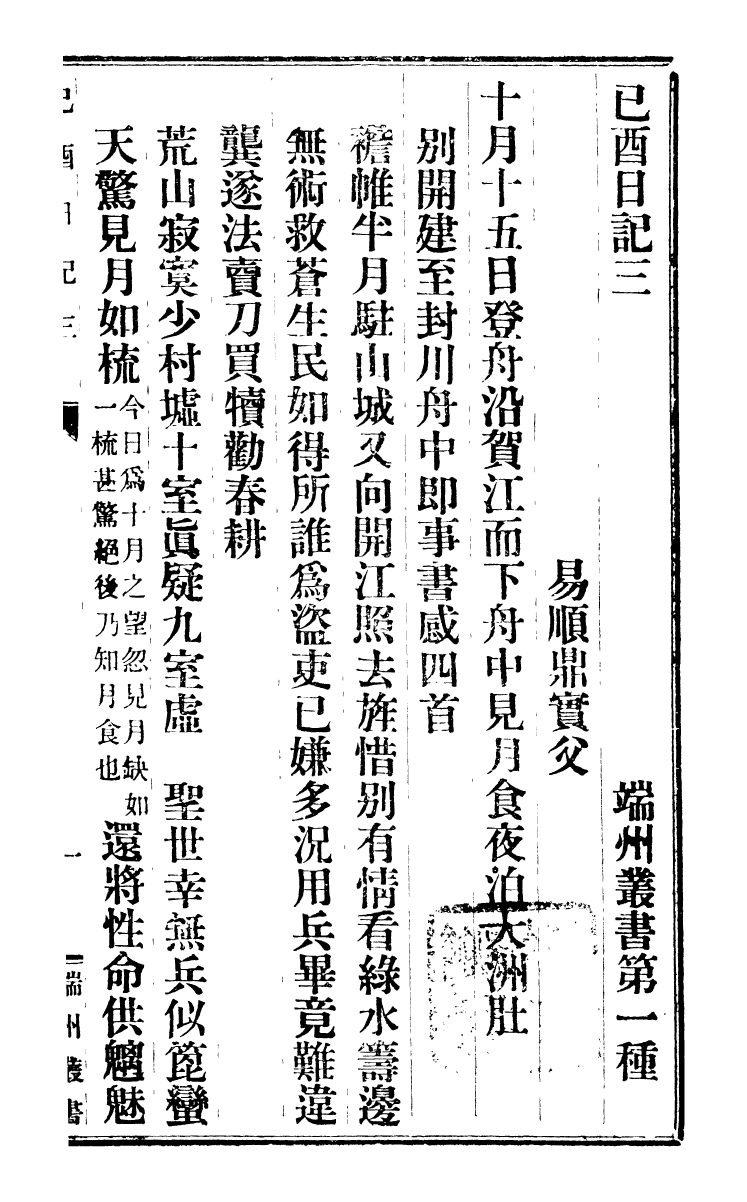 己酉日記三　端州叢書第一種
易順鼎實父
十月十五日登舟沿賀江而下舟中見月食夜泊大洲肚
别開建至封川舟中即事書感四首
襜帷半月駐山城又向開江照去旌惜别有情看綠水籌邊
無術救蒼生民如得所誰爲盜吏已嫌多況用兵畢竟難違
龔遂法賣刀買犢勸春耕
荒山寂寞少村墟十室眞疑九室虛　聖世幸無兵似篦蠻
天驚見月如梳今日爲十月之望忽見月缺如一梳甚驚絕後乃知月食也還將性命供魑魅
己酉日記三　一　端州叢書